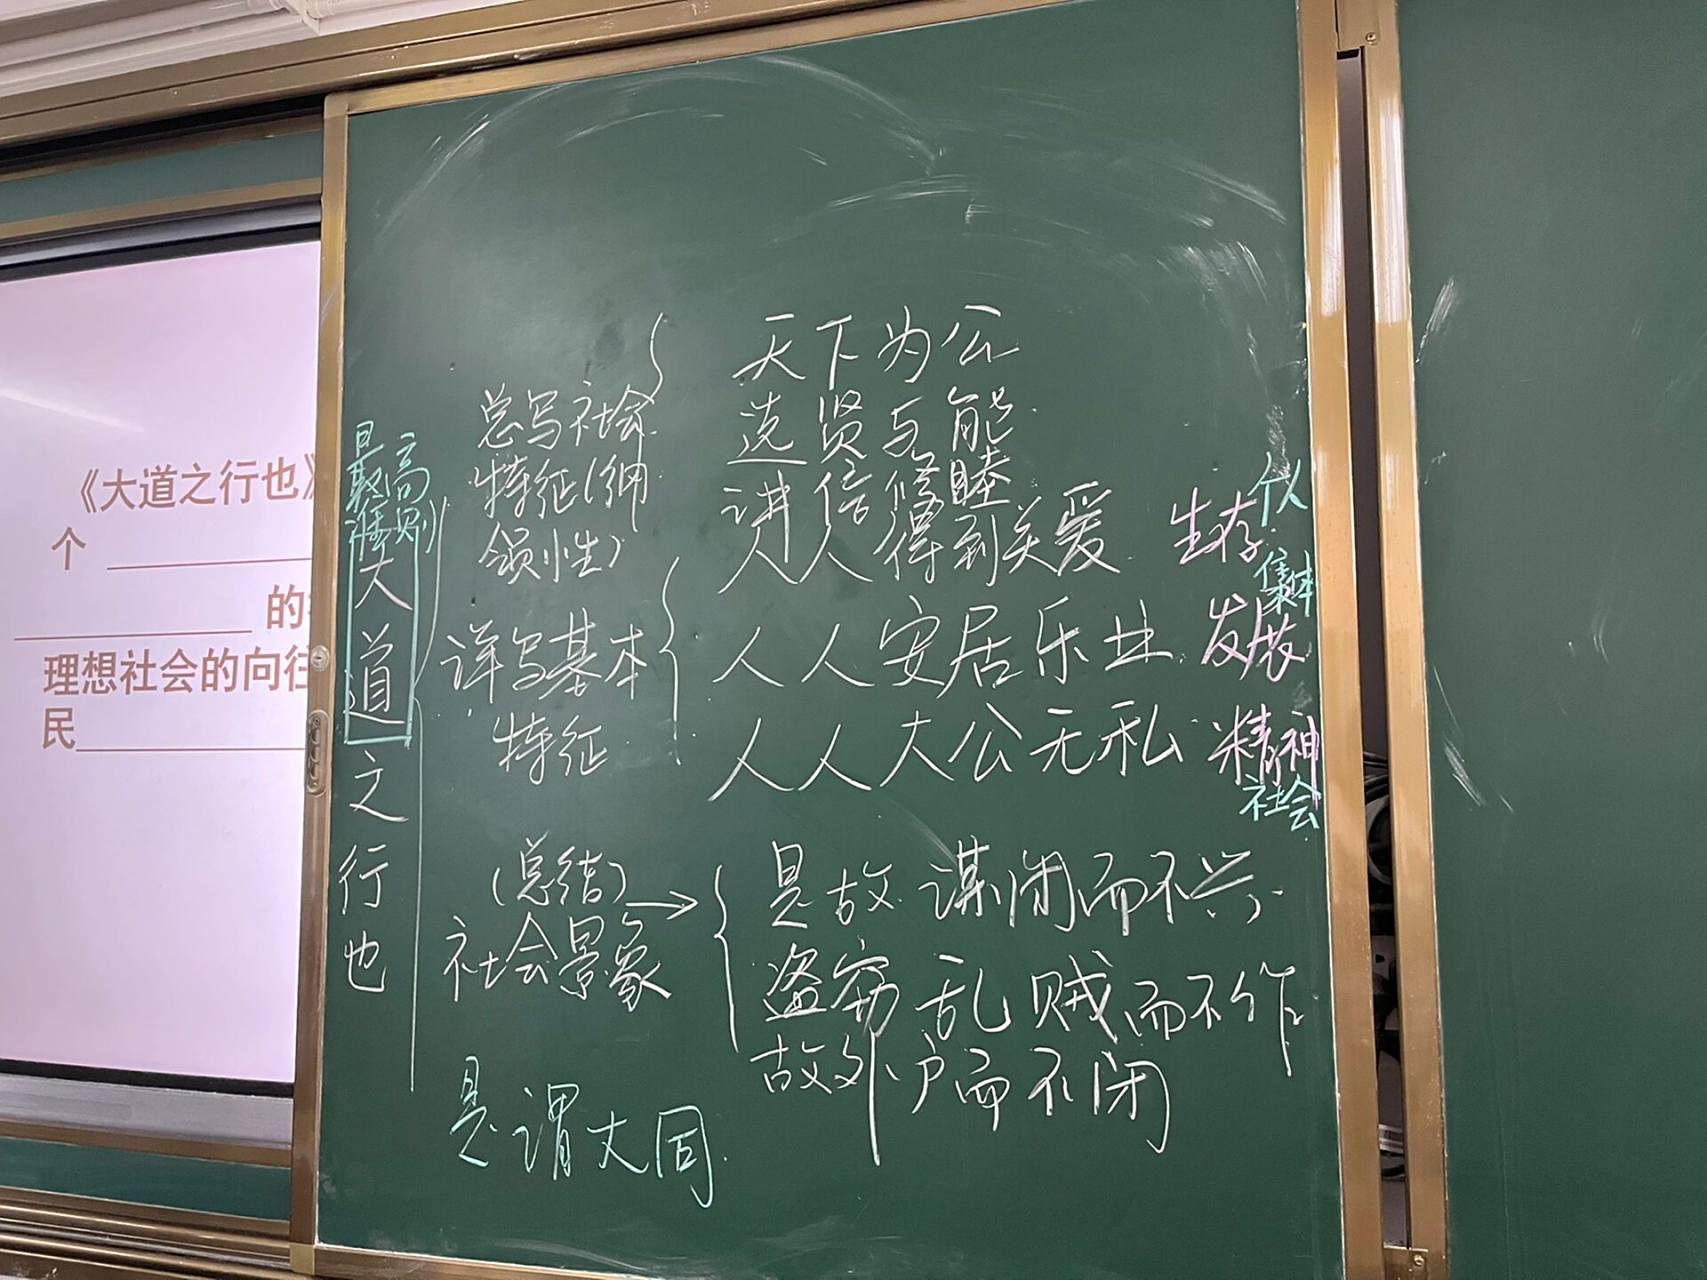 《大道之行也》
个
的
理想社会的向往
民
最高
准则
大道之行也
总写社会
特征(纲
领性)
天下为公
选贤与能
讲信修睦
详写基本
特征
人人得到关爱 生存
人人安居乐业 发展
人人大公无私 精神
个人
集体
社会
(总结)
社会景象
是故谋闭而不兴
盗窃乱贼而不作
故外户而不闭
是谓大同